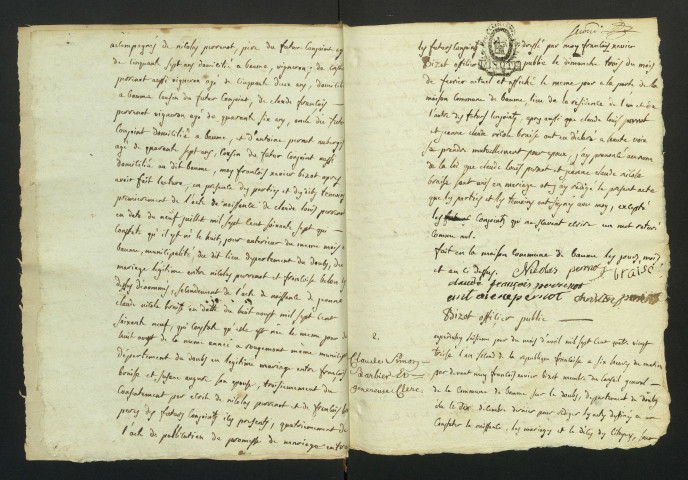 accompagnés de nicolas perrenot, pere du futur conjoint agé
de cinquante sept ans domicilié a baume, vigneron; de
perrenot aussi vigneron agé de cinquante deux ans, domicilié
a baume cousin du futur conjoint, de claude françois
perrenot vigneron agé de quarante six ans, oncle du futur
conjoint domicilié a baume, et d'antoine pernot
agé de quarante sept ans, cousin du futur conjoint aussi
domicilié au dit baume, moy françois xavier bizot apres
avoir fait lecture, en presence des parties et desdits temoins
premierement de l'acte de naissance de claude louis perrenot
en date du neuf juillet mil sept cent soixante sept qui
constate qu'il est né le huit, jour anterieur du meme mois
baume, municipalité du dit lieu departement du doubs, du
mariage legitime entre nicolas perrenot et françoise
dessus denommés, secondement de l'acte de naissance de jeanne
claude nicole braise en date du huit aoust mil sept cent
soixante neuf, qui constate qu'elle est née le meme jour de
huit aoust de la meme année a rougemont meme
departement du doubs en legitime mariage entre françois
braise et son epouse, troisiement du
consentement par ecrit de nicolas perrenot et de françois
peres des futurs conjoints icy presents, quatriemement de
l'acte de publication de promesse de mariage entre
second
les futurs conjoints dressé par moy françois xavier
Bizot officier public le dimanche trois du mois
de fevrier actuel et affiché le meme jour a la porte de la
maison commune de baume, lieu de la residence de l'un et de
l'autre des futurs conjoints, apres aussi que claude louis pernot
et jeanne claude nicole braise ont eu declaré a haute voix
se prendre mutuellement pour epoux, j'ay prononcé au nom
de la loi que claude louis pernot et jeanne claude nicole
braise sont unis en mariage et j'ay redigé le present acte
que les parties et les temoins ont signé avec moy, excepté
les conjoints qui ne scavent ecrire un mot raturé
comme nul.
fait en la maison commune de baume les jour, mois
et an cy dessus. Nicolas pernot f braise
claude françois perrenot
Bizot officier public
2.
Claude Simon
Barbier et
genereuse Clere.
aujourd'huy du mois d'avril mil sept cent quatre vingt
treize l'an second de la republique françoise a six heures du matin
par devant moy françois xavier bizot membre du conseil general
de la commune de Baume sur le doubs, departement du doubs
elu le dix decembre dernier pour rediger les actes destinés a
constater la naissance, les mariages et le décès des citoyens, sont